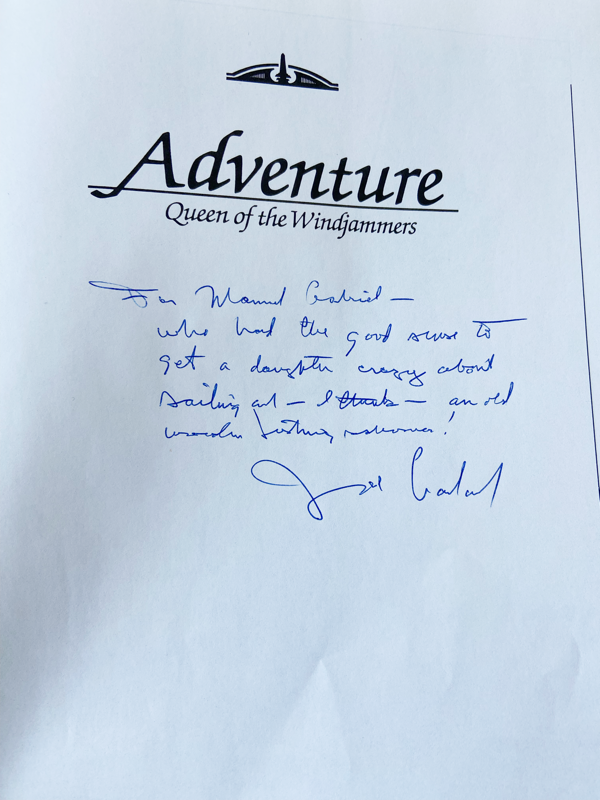 Adventure
Queen of the Windjammers
For Manuel Gabriel —
who had the good sense to
get a daughter crazy about
sailing and — I think — an old
wooden fishing schooner!
Joe Garland